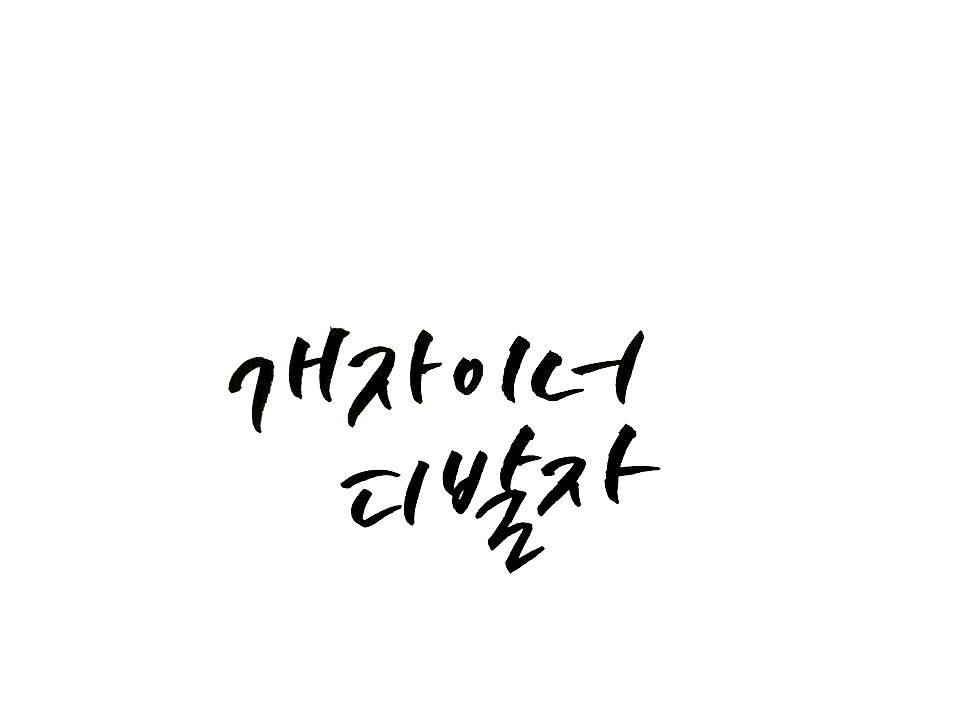 개자이너
디발자